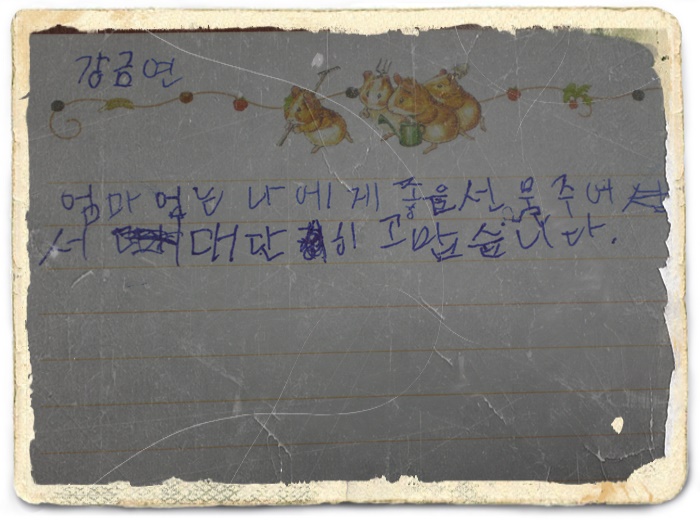 강금연
엄마 얼님 나에게 좋은선물주어
서 대단히 고맙습니다.